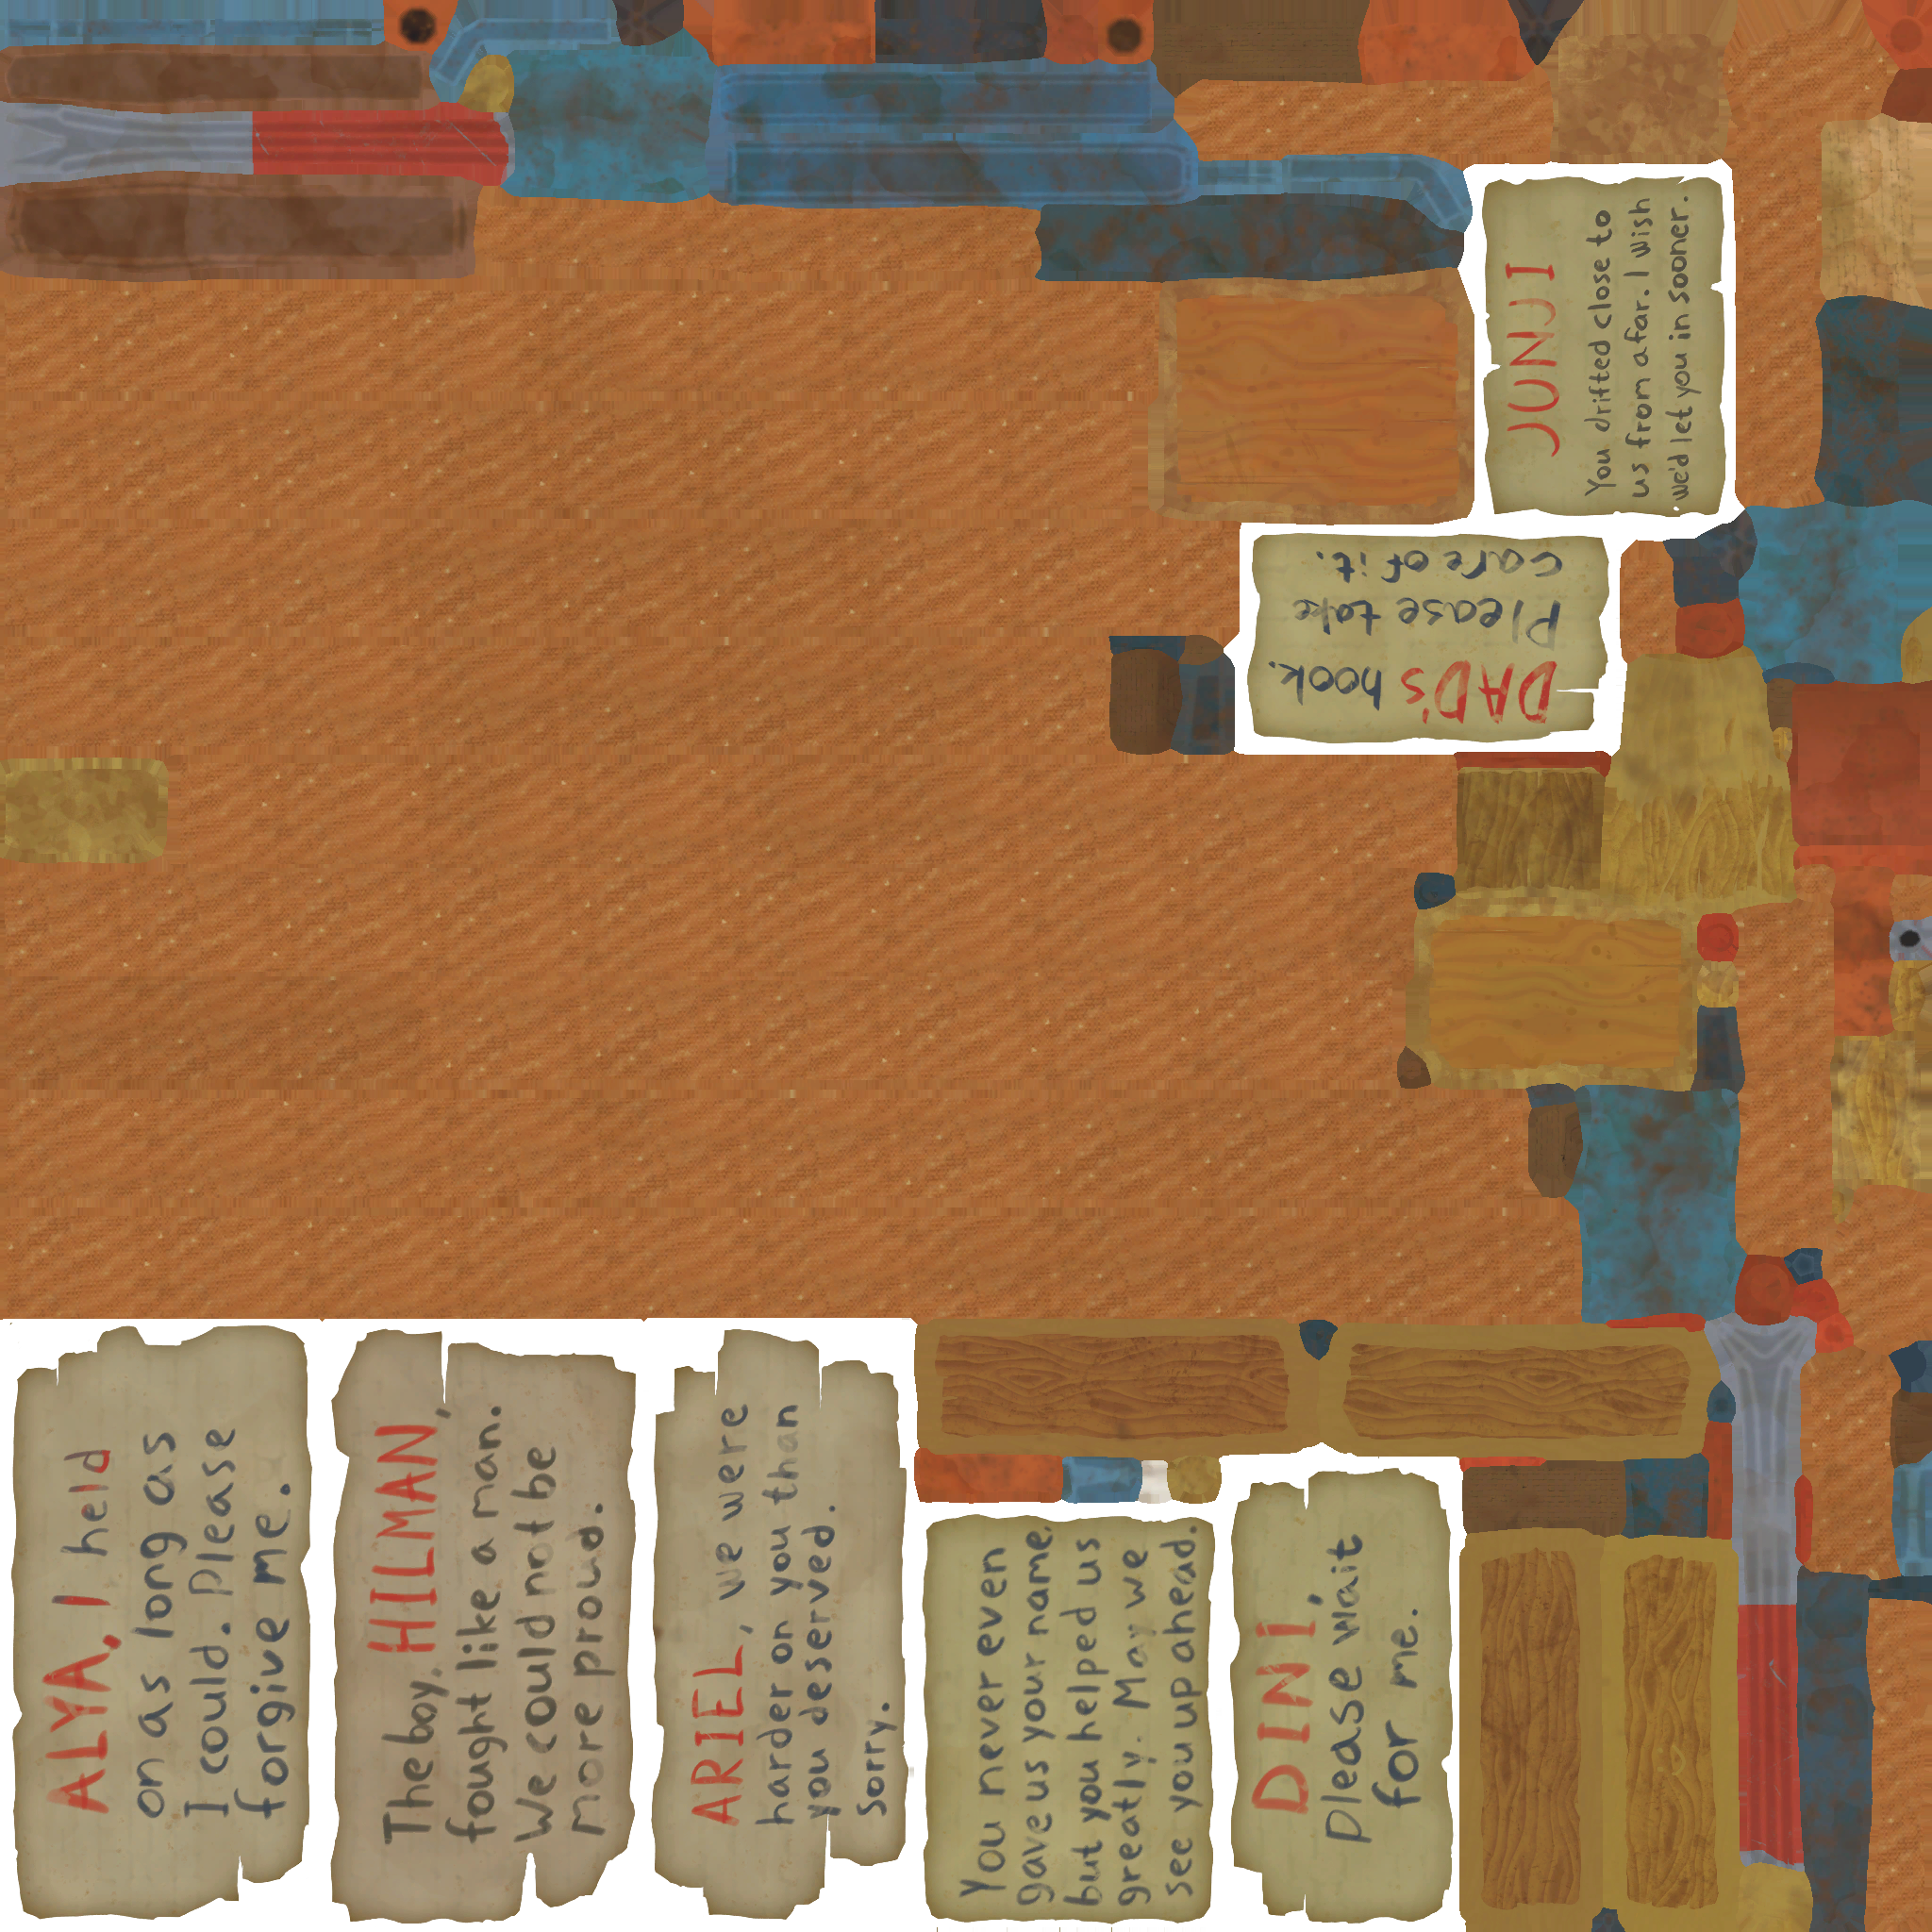 JUNJI
You drifted close to
us from afar. I wish
we'd let you in sooner.
DAD's hook.
Please take
care of it.
ALYA, I held
on as long as
I could. Please
forgive me.
The boy, HILMAN,
fought like a man.
We could not be
more proud.
ARIEL, we were
harder on you than
you deserved.
Sorry.
You never even
gave us your name,
but you helped us
greatly. May we
see you up ahead.
DINI,
Please wait
for me.